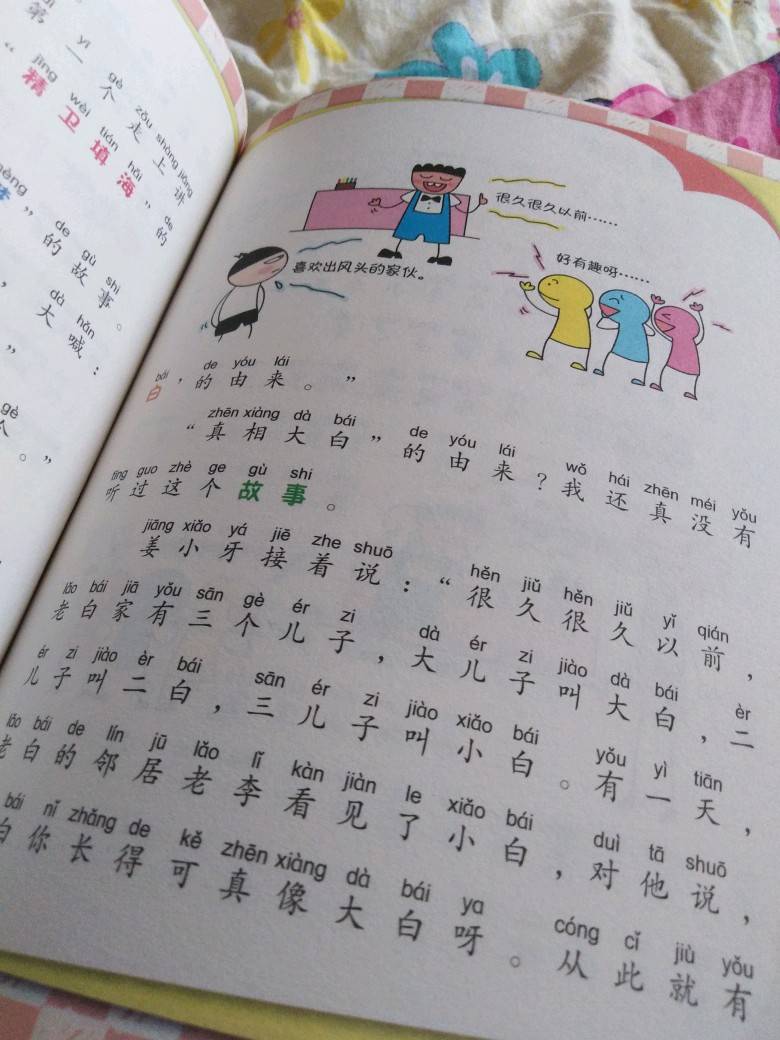 dì yī gè zǒu shàng jiǎng
第一个走上讲
jīng wèi tián hǎi de
“精卫填海”的
de gù shi
”的故事。
dà hǎn
，大喊：
”
gè
个。”
很久很久以前……
喜欢出风头的家伙。
好有趣呀……
bái de yóu lái
白’的由来。”
zhēn xiàng dà bái de yóu lái wǒ hái zhēn méi yǒu
“真相大白”的由来？我还真没有
tīng guo zhè ge gù shi
听过这个故事。
jiāng xiǎo yá jiē zhe shuō hěn jiǔ hěn jiǔ yǐ qián
姜小牙接着说：“很久很久以前，
lǎo bái jiā yǒu sān gè ér zi dà ér zi jiào dà bái èr
老白家有三个儿子，大儿子叫大白，二
ér zi jiào èr bái sān ér zi jiào xiǎo bái yǒu yì tiān
儿子叫二白，三儿子叫小白。有一天，
lǎo bái de lín jū lǎo lǐ kàn jiàn le xiǎo bái duì tā shuō
老白的邻居老李看见了小白，对他说，
bái nǐ zhǎng de kě zhēn xiàng dà bái ya cóng cǐ jiù yǒu
白你长得可真像大白呀。从此就有